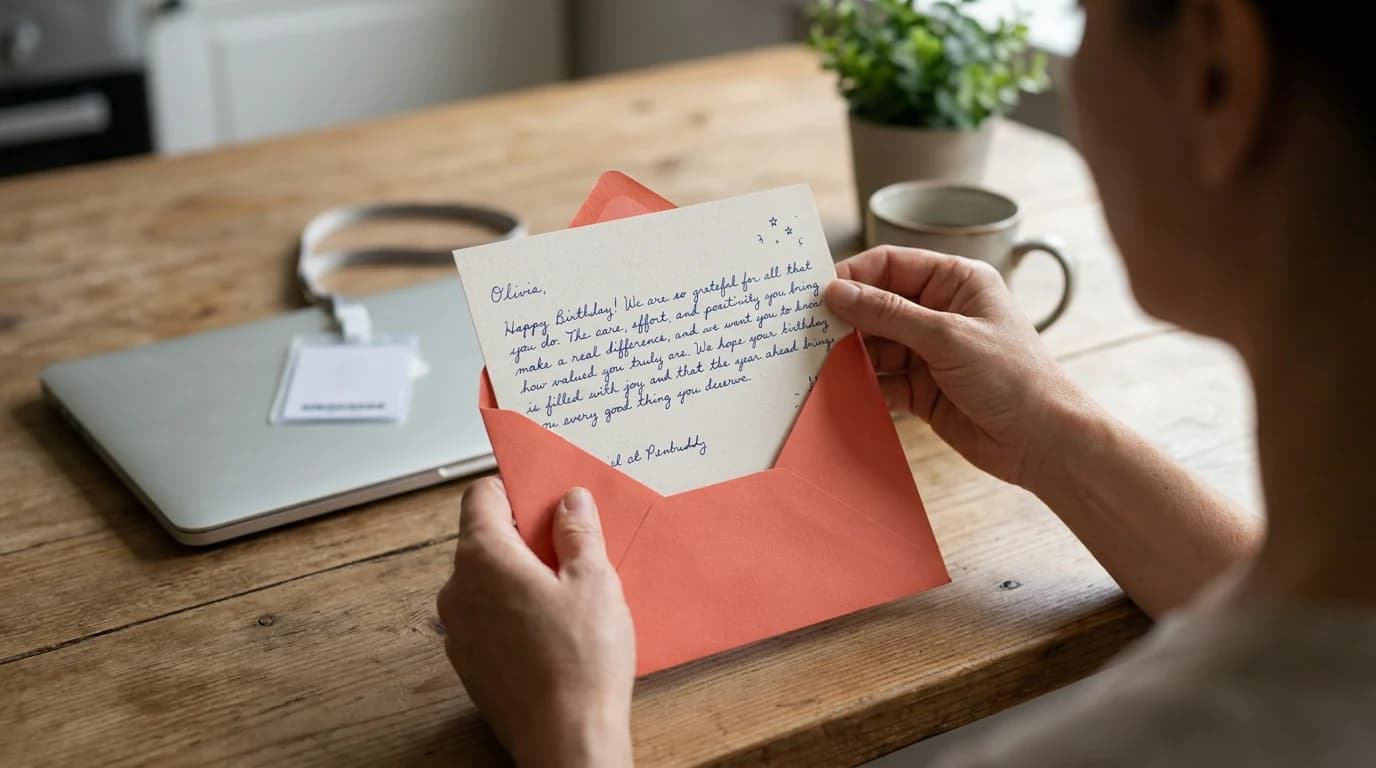 Olivia,
Happy Birthday! We are so grateful for all that
you do. The care, effort, and positivity you bring
make a real difference, and we want you to know
how valued you truly are. We hope your birthday
is filled with joy and that the year ahead brings
every good thing you deserve.
at Penbuddy